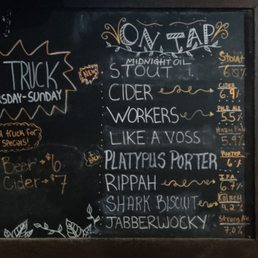 TRUCK
SDAY-SUNDAY
truck for
Specials!
Beer $6
Cider $7
ON TAP
MIDNIGHT OIL
STOUT
CIDER
WORKERS
LIKE A VOSS
PLATYPUS PORTER
RIPPAH
SHARK BISCUIT
JABBERWOCKY
Stout
PALE ALE
5.5%
PORTER
IPA
6.7%
KOLSCH
4.2%
Strong Ale
7.0%